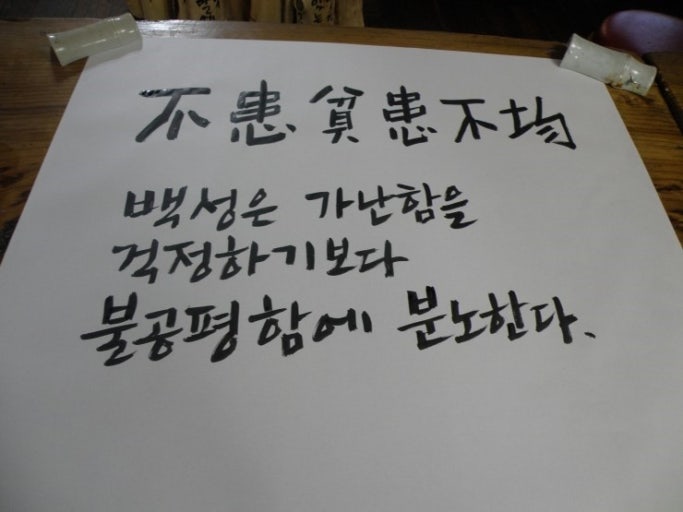 不患貧患不均
백성은 가난함을
걱정하기보다
불공평함에 분노한다.